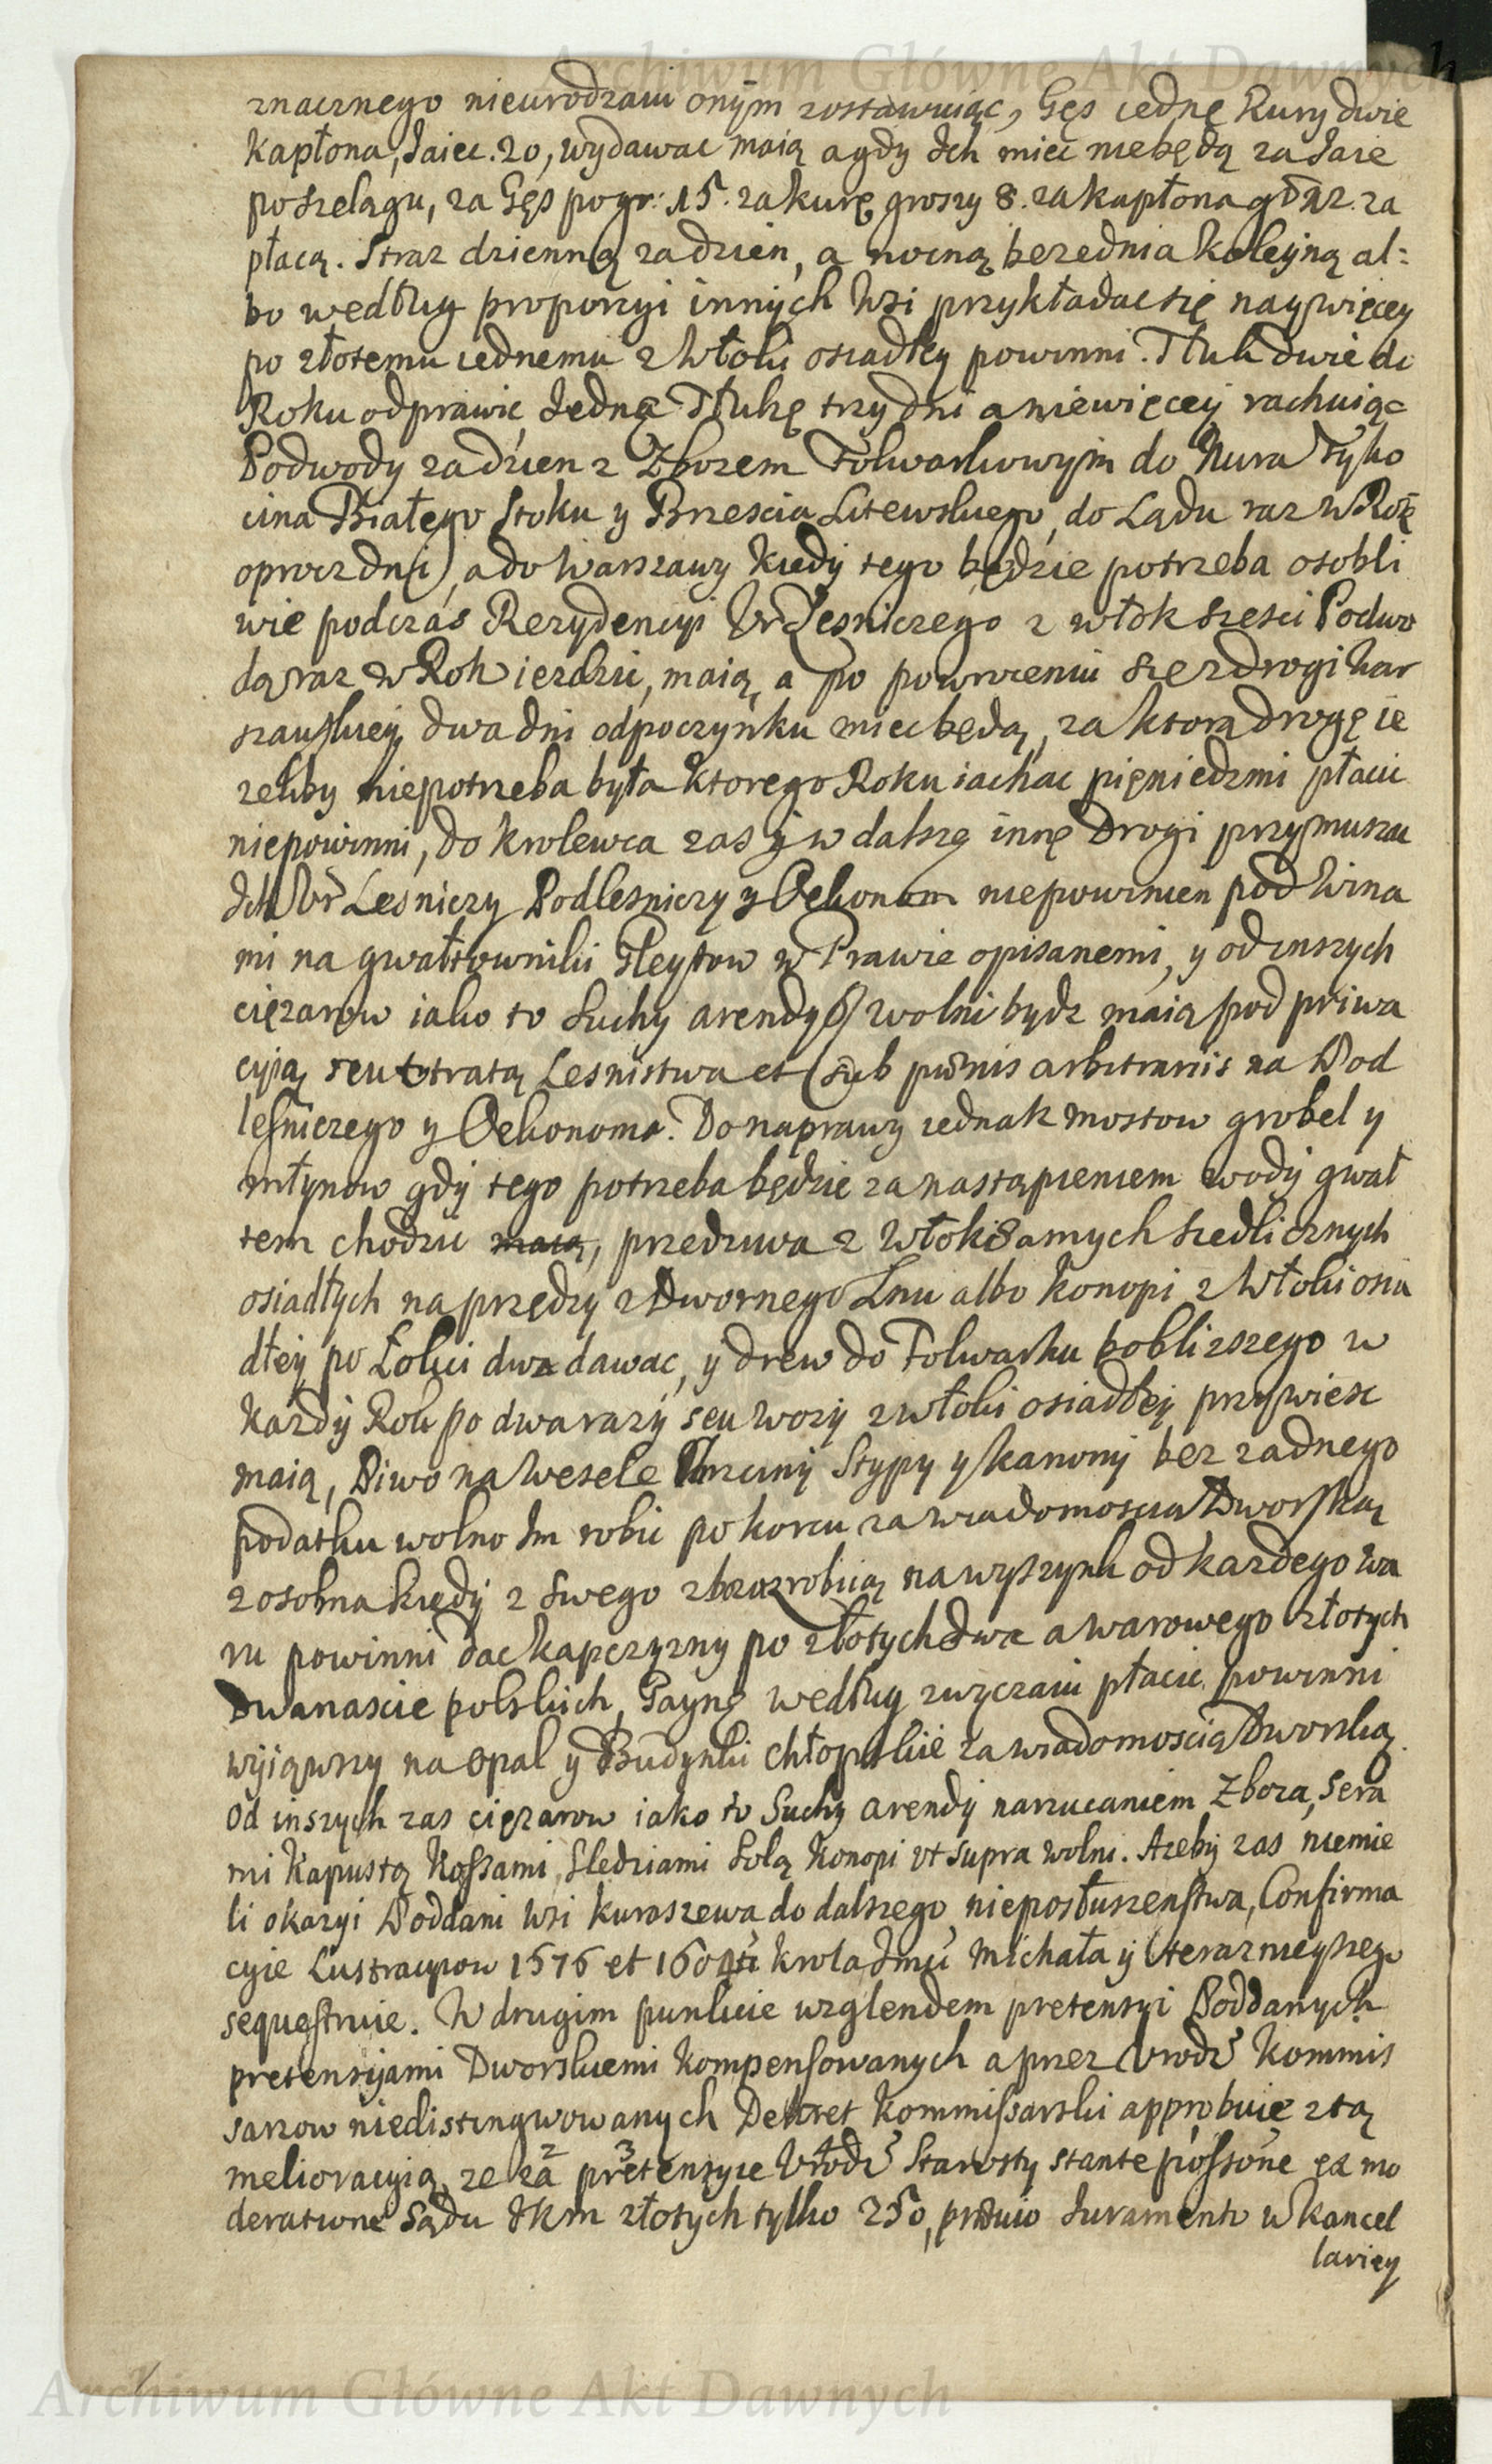 Archiwum Główne Akt Dawnych
znacznego nieurodzaiu onym zostawuiąc, Gęs iednę Kury dwie
Kapłona, Jaiec. 20, wydawac maią a gdy Ich miec niebędą za Jaie
poszelągu, za Gęs po gr: 15. za kurę groszy 8. za kapłona gr 12. za
płacą. Straz dzienną za dzien, a nocną bezednia koleyną al=
bo według proporcyi innych Wsi przykładac się naywięcey
po złotemu iednemu z Włoki osiadłey powinni. Tłuk dwie do
Roku odprawic Jednę Tłukę trzy dni a niewięcey rachuiąc
Podwody za dzien z Zbozem Folwarkowym do Nura Tyko
cina Białego Stoku y Brzescia Litewskiego, do Lądu raz w Rok
oprocz dni, a do Warszawy kiedy tego będzie potrzeba osobli
wie podczas Rezydencyi Ur Lesniczego z włok szesci Podwo
dą raz w Rok iezdzic, maią, a po powroceniu się z drogi War
szawskiey dwa dni odpoczynku miec będą, za ktorą drogę ie
zeliby niepotrzeba była ktorego Roku iachac pięniedzmi płacic
niepowinni, do Krolewca zas y w dalszą innę Drogi przymuszac
Ich Ur Lesniczy Podlesniczy y Oekonom niepowinien pod Wina
mi na gwałtowniki Gleytow w Prawie opisanemi, y od inszych
cięzarow iako to Suchy arendy wolni bydz maią pod priwa
cyią seu utratą Lesnistwa et sub pœnis arbitrariis na Pod
lesniczego y Oekonoma. Do naprawy iednak mostow grobel y
młynow gdy tego potrzeba będzie za nastąpieniem wody gwał
tem chodzic maią, przedziwa z Włok Samych siedlicznych
osiadłych na przędzy z Dwornego Lnu albo Konopi z Włoki osia
dłey po Łokci dwa dawac, y drew do Folwarku pobliszszego w
Kazdy Rok po dwa razy seu wozy z włoki osiadłey przywiesc
maią, Piwo na Wesele Chrzciny Stypy y Kanony bez zadnego
podatku wolno Im robic po korcu za wiadomoscia Dworską
z osobna kiedy z swego zboza zrobią na wyszynk od kazdego wa
ru powinni dac kapczyzny po złotych dwa a warowego złotych
Dwanascie polskich, Gaynę według zwyczaiu płacic powinni
wyiąwszy na opał y Budynki chłopskie za wiadomoscią Dworską
od inszych zas cięzarow iako to Suchy arendy narzucaniem Zboza, Sera
mi Kapustą Kossami, Sledziami Solą Konopi ut supra wolni. Azeby zas niemie
li okazyi Poddani Wsi Kuraszewa do dalszego nieposłuszenstwa, Confirma
cyie Lustracyow 1576 et 1604ti Krola Jmci Michała y teraznieyszego
sequestruie. W drugim punkcie wzglendem pretensyi Poddanych
pretensyami Dworskiemi kompensowanych a przez Urodz Kommis
sarzow niedistingwowanych Dekret Kommissarski approbuie z tą
melioracyią, ze za 2 3 pretensyie Urodz Starosty stante possone ex mo
deratione Sądu JKm złotych tylko 250, prævio Juramento w Kancel
lariey
Archiwum Główne Akt Dawnych